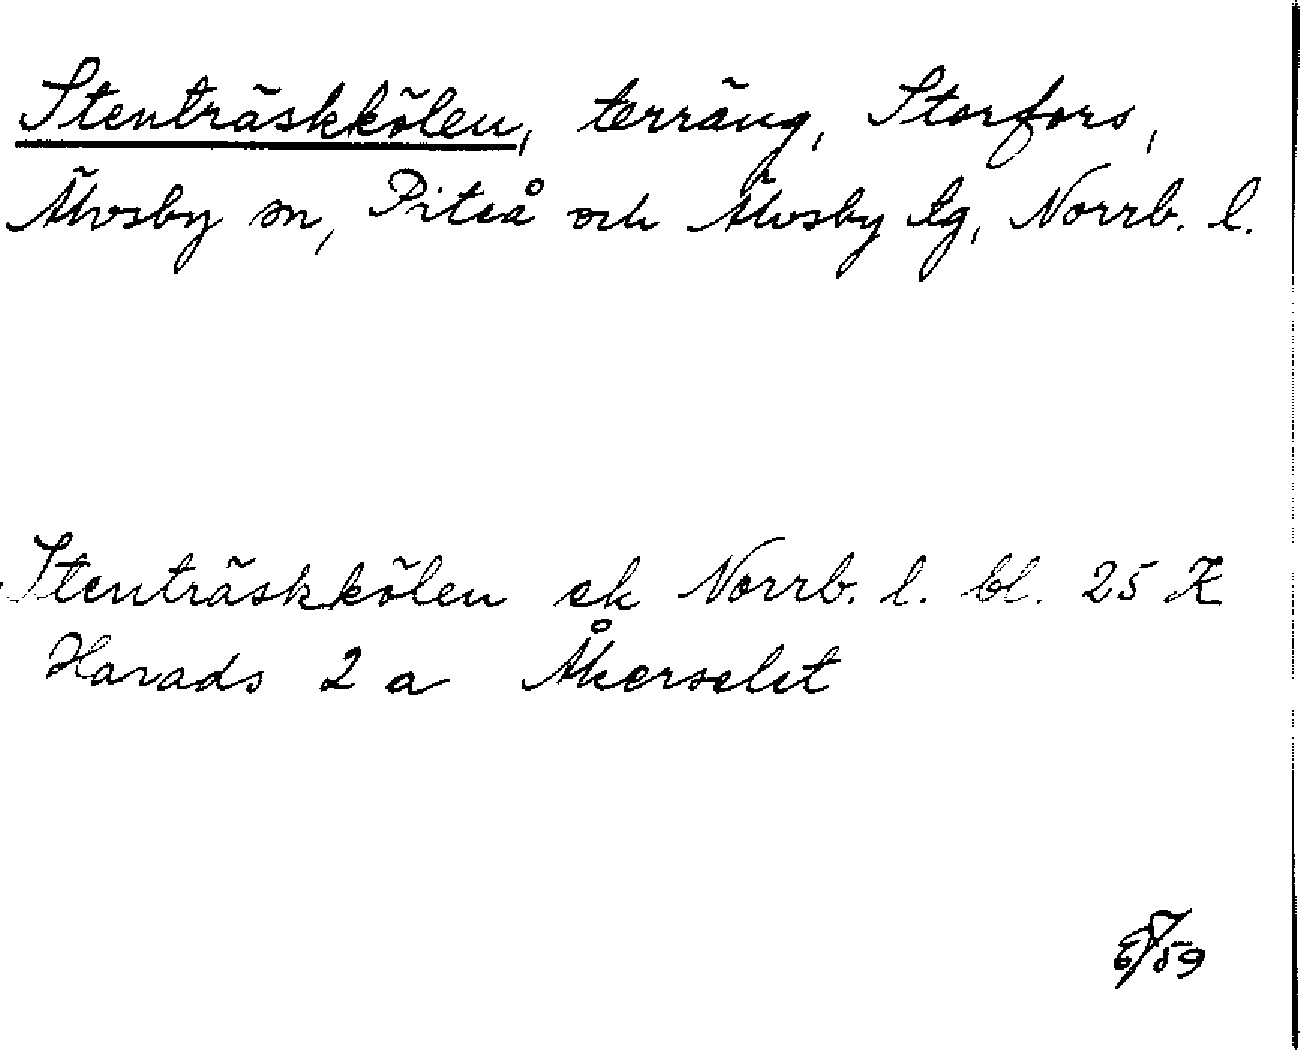 Stenträskkölen, terräng, Storfors,
Älvsby sn, Piteå och Älvsby tg, Norrb. l.
Stenträskkölen ek Norrb. l. bl. 25 K
Harads 2 a Åkerselet